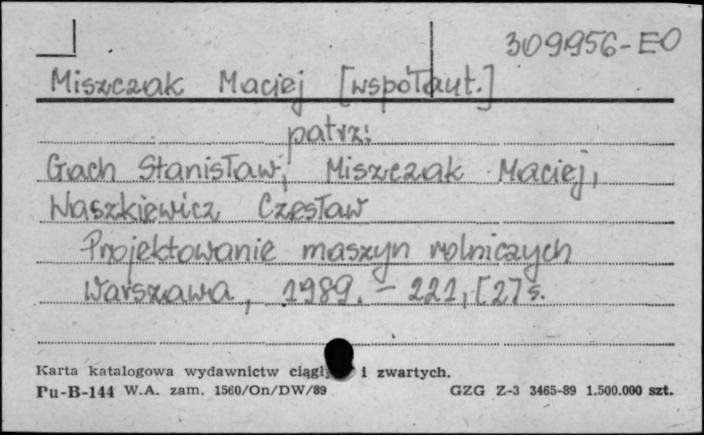 309956-EO
Miszczak Maciej [współaut.]
patrz:
Gach Stanisław, Miszczak Maciej,
Waszkiewicz Czesław
Projektowanie maszyn rolniczych
Warszawa, 1989. - 221, [2] s.
Karta katalogowa wydawnictw ciągły i zwartych.
Pu-B-144 W.A. zam. 1560/On/DW/89 GZG Z-3 3465-89 1.500.000 szt.